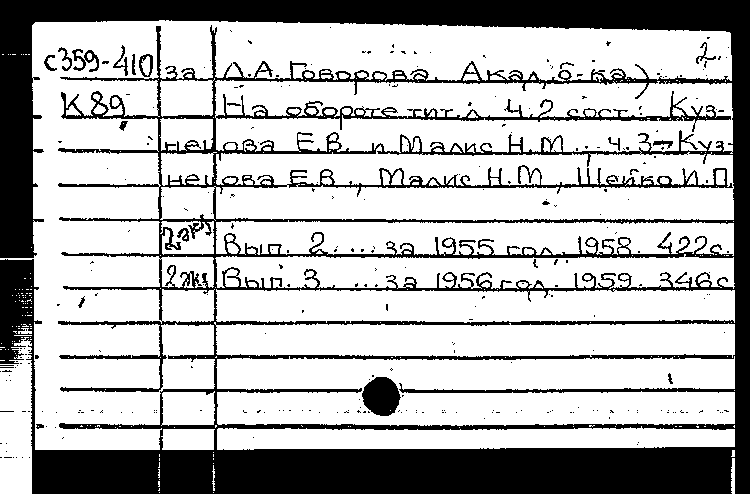 2.
с359-410 за Л.А. Говорова. Акад. б-ка)
К 89 На обороте тит. л. ч. 2 сост.: Куз-
нецова Е.В. и Малис Н.М. ч. 3 - Куз-
нецова Е.В., Малис Н.М, Шейко И.П
2 экз Вып. 2. ... за 1955 год. 1958. 422с.
2 экз Вып. 3 ... за 1956 год. 1959. 346с